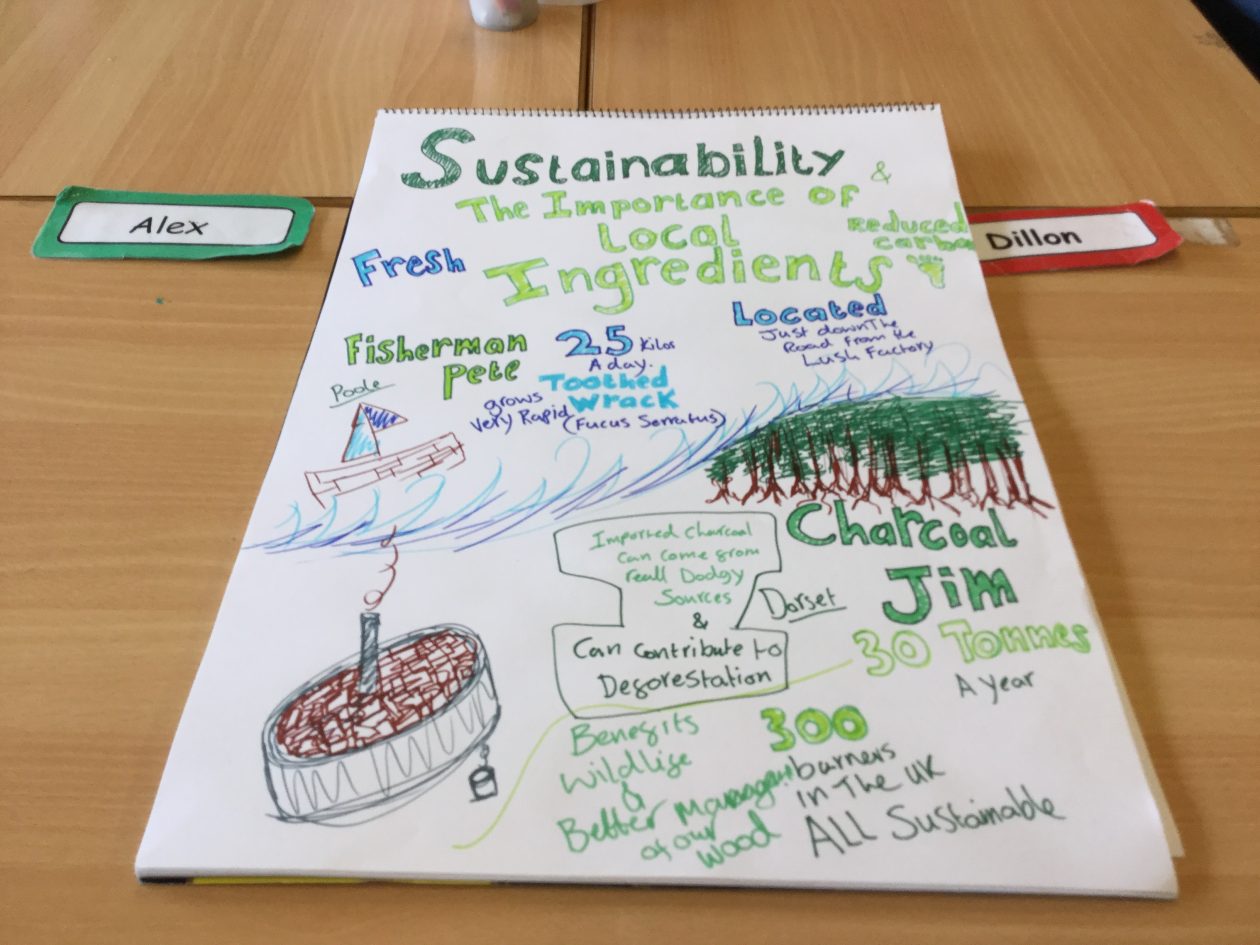 Sustainability
&
The Importance of
Local
Ingredients
Reduced
carbo
Alex
Dillon
Fresh
Fisherman
Pete
Poole
25 Kilos
A day.
Toothed
Wrack
(Fucus Serratus)
grows
Very Rapid
Located
Just down The
Road from the
Lush Factory
Imported Charcoal
Can come from
reall Dodgy
Sources
&
Can Contribute to
Deforestation
Charcoal
Jim
Dorset
30 Tonnes
A year
Benefits
Wildlife
&
Better Management
of our
wood
300
burners
in The UK
ALL Sustainable